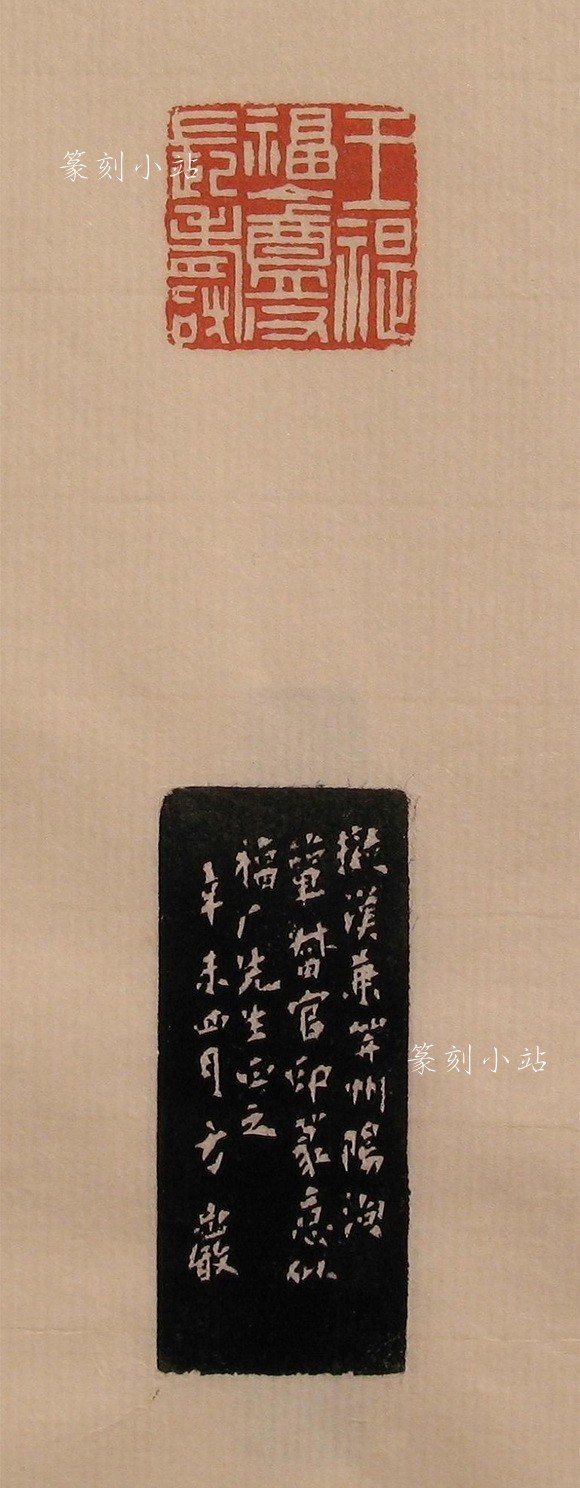 篆刻小站
王禔
福盦
長壽
擬漢兼州陽
督官印篆意似
福厂先生正之
辛未四月方巖
篆刻小站